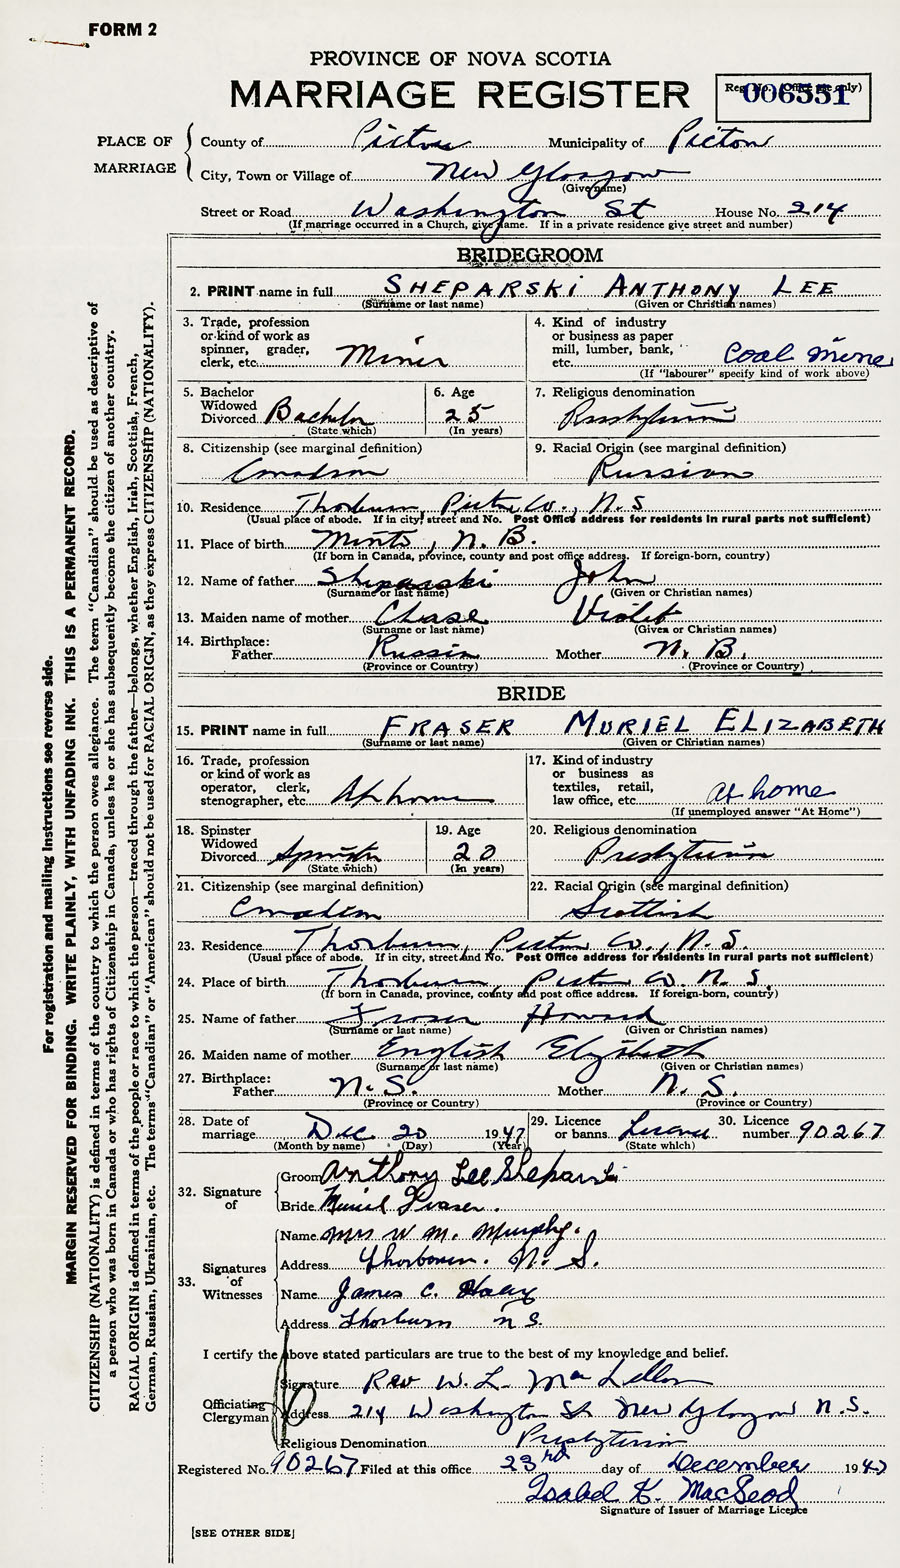 FORM 2
PROVINCE OF NOVA SCOTIA
MARRIAGE REGISTER
Reg. No. (Office use only)
006551
PLACE OF MARRIAGE
County of Pictou Municipality of Pictou
City, Town or Village of New Glasgow
(Give name)
Street or Road Washington St House No. 214
(If marriage occurred in a Church, give name. If in a private residence give street and number)
BRIDEGROOM
2. PRINT name in full SHEPARSKI ANTHONY LEE
(Surname or last name) (Given or Christian names)
3. Trade, profession or kind of work as spinner, grader, clerk, etc. Miner
4. Kind of industry or business as paper mill, lumber, bank, etc. Coal Mine
(If "labourer" specify kind of work above)
5. Bachelor Widowed Divorced Bachelor
(State which)
6. Age 25
(In years)
7. Religious denomination Presbyterian
8. Citizenship (see marginal definition) Canadian
9. Racial Origin (see marginal definition) Russian
10. Residence Thorburn, Pictou Co., N.S
(Usual place of abode. If in city, street and No. Post Office address for residents in rural parts not sufficient)
11. Place of birth Minto, N.B.
(If born in Canada, province, county and post office address. If foreign-born, country)
12. Name of father Sheparski John
(Surname or last name) (Given or Christian names)
13. Maiden name of mother Chase Violet
(Surname or last name) (Given or Christian names)
14. Birthplace:
Father Russia Mother N.B.
(Province or Country) (Province or Country)
BRIDE
15. PRINT name in full FRASER MURIEL ELIZABETH
(Surname or last name) (Given or Christian names)
16. Trade, profession or kind of work as operator, clerk, stenographer, etc. At home
17. Kind of industry or business as textiles, retail, law office, etc. At home
(If unemployed answer "At Home")
18. Spinster Widowed Divorced Spinster
(State which)
19. Age 20
(In years)
20. Religious denomination Presbyterian
21. Citizenship (see marginal definition) Canadian
22. Racial Origin (see marginal definition) Scottish
23. Residence Thorburn, Pictou Co., N.S.
(Usual place of abode. If in city, street and No. Post Office address for residents in rural parts not sufficient)
24. Place of birth Thorburn, Pictou Co. N.S.
(If born in Canada, province, county and post office address. If foreign-born, country)
25. Name of father Fraser Howard
(Surname or last name) (Given or Christian names)
26. Maiden name of mother English Elizabeth
(Surname or last name) (Given or Christian names)
27. Birthplace:
Father N.S. Mother N.S.
(Province or Country) (Province or Country)
28. Date of marriage Dec. 20 1947
(Month by name) (Day) (Year)
29. Licence or banns License
(State which)
30. Licence number 90267
32. Signature of
Groom Anthony Lee Sheparski
Bride Muriel Fraser.
33. Signatures of Witnesses
Name Mrs W M. Murphy.
Address Thorburn. N.S.
Name James C.
Address Thorburn N S.
I certify the above stated particulars are true to the best of my knowledge and belief.
Officiating Clergyman
Signature Rev W. L. MacLellan
Address 214 Washington St New Glasgow N.S.
Religious Denomination Presbyterian
Registered No. 90267 Filed at this office 23rd day of December 1947
Isabel K. MacLeod
Signature of Issuer of Marriage Licence
[SEE OTHER SIDE]
For registration and mailing instructions see reverse side.
MARGIN RESERVED FOR BINDING. WRITE PLAINLY, WITH UNFADING INK. THIS IS A PERMANENT RECORD.
CITIZENSHIP (NATIONALITY) is defined in terms of the country to which the person owes allegiance. The term "Canadian" should be used as descriptive of
a person who was born in Canada or who has rights of Citizenship in Canada, unless he or she has subsequently become the citizen of another country.
RACIAL ORIGIN is defined in terms of the people or race to which the person—traced through the father—belongs, whether English, Irish, Scottish, French,
German, Russian, Ukrainian, etc. The terms "Canadian" or "American" should not be used for RACIAL ORIGIN, as they express CITIZENSHIP (NATIONALITY).